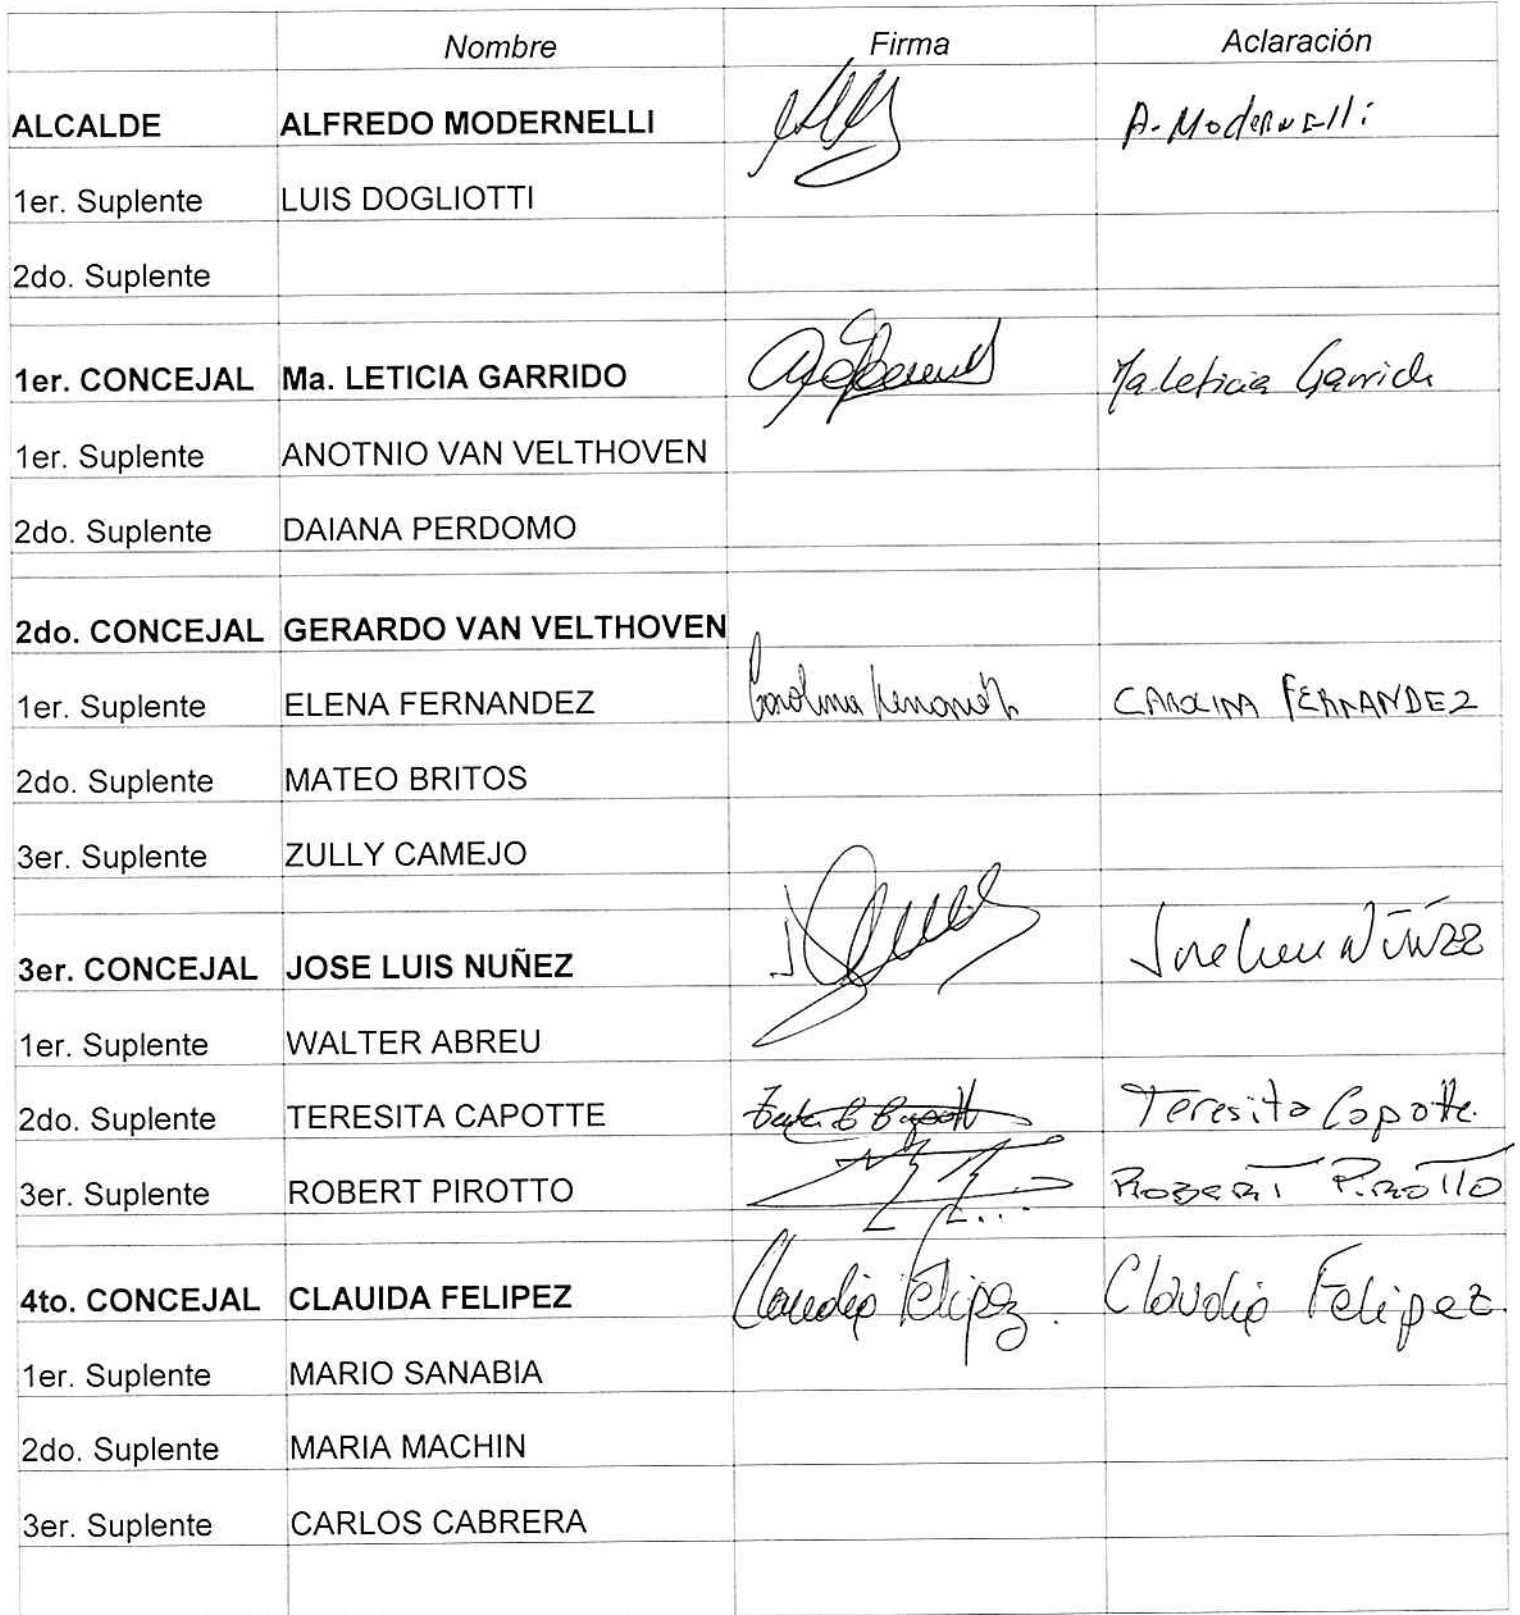 Nombre Firma Aclaración
ALCALDE ALFREDO MODERNELLI A. Modernelli
1er. Suplente LUIS DOGLIOTTI
2do. Suplente
1er. CONCEJAL Ma. LETICIA GARRIDO Ma Leticia Garrido
1er. Suplente ANOTNIO VAN VELTHOVEN
2do. Suplente DAIANA PERDOMO
2do. CONCEJAL GERARDO VAN VELTHOVEN
1er. Suplente ELENA FERNANDEZ Carolina Fernandez CAROLINA FERNANDEZ
2do. Suplente MATEO BRITOS
3er. Suplente ZULLY CAMEJO
3er. CONCEJAL JOSE LUIS NUÑEZ Jose Luis Núñez
1er. Suplente WALTER ABREU
2do. Suplente TERESITA CAPOTTE Teresita Capotte.
3er. Suplente ROBERT PIROTTO ROBERT PIROTTO
4to. CONCEJAL CLAUIDA FELIPEZ Claudia Felipez. Claudia Felipez.
1er. Suplente MARIO SANABIA
2do. Suplente MARIA MACHIN
3er. Suplente CARLOS CABRERA